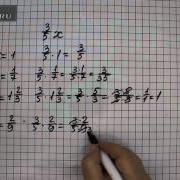 3/5 x
= 1 3/5 · 1 = 3/5
= 1/7 3/5 · 1/7 = 3·1/5·7 = 3/35
= 1 2/3 3/5 · 1 2/3 = 3/5 · 5/3 = 3·5/5·3 = 1/1 = 1
= 2/9 3/5 · 2/9 = 3·2/5·9 3